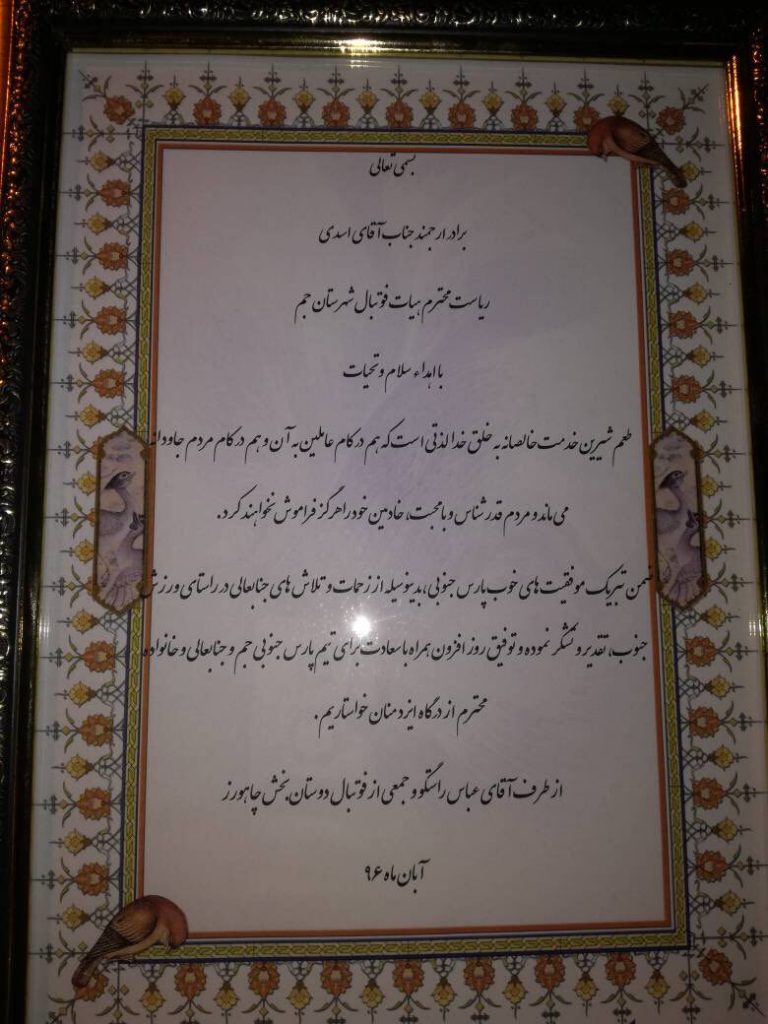 بسمی تعالی
برادر ارجمند جناب آقای اسدی
ریاست محترم هیات فوتبال شهرستان جم
با اهداء سلام و تحیات
طعم شیرین خدمت خالصانه به خلق خدا لذتی است که هم در کام عاملین به آن و هم در کام مردم جاودانه
می ماند و مردم قدرشناس و با محبت، خادمین خود را هرگز فراموش نخواهند کرد.
ضمن تبریک موفقیت های خوب پارس جنوبی، بدینوسیله از زحمات و تلاش های جنابعالی در راستای ورزش
جنوب، تقدیر و تشکر نموده و توفیق روز افزون همراه با سعادت برای تیم پارس جنوبی جم و جنابعالی و خانواده
محترم از درگاه ایزد منان خواستاریم.
از طرف آقای عباس راستگو و جمعی از فوتبال دوستان بخش چاهورز
آبان ماه ۹۶